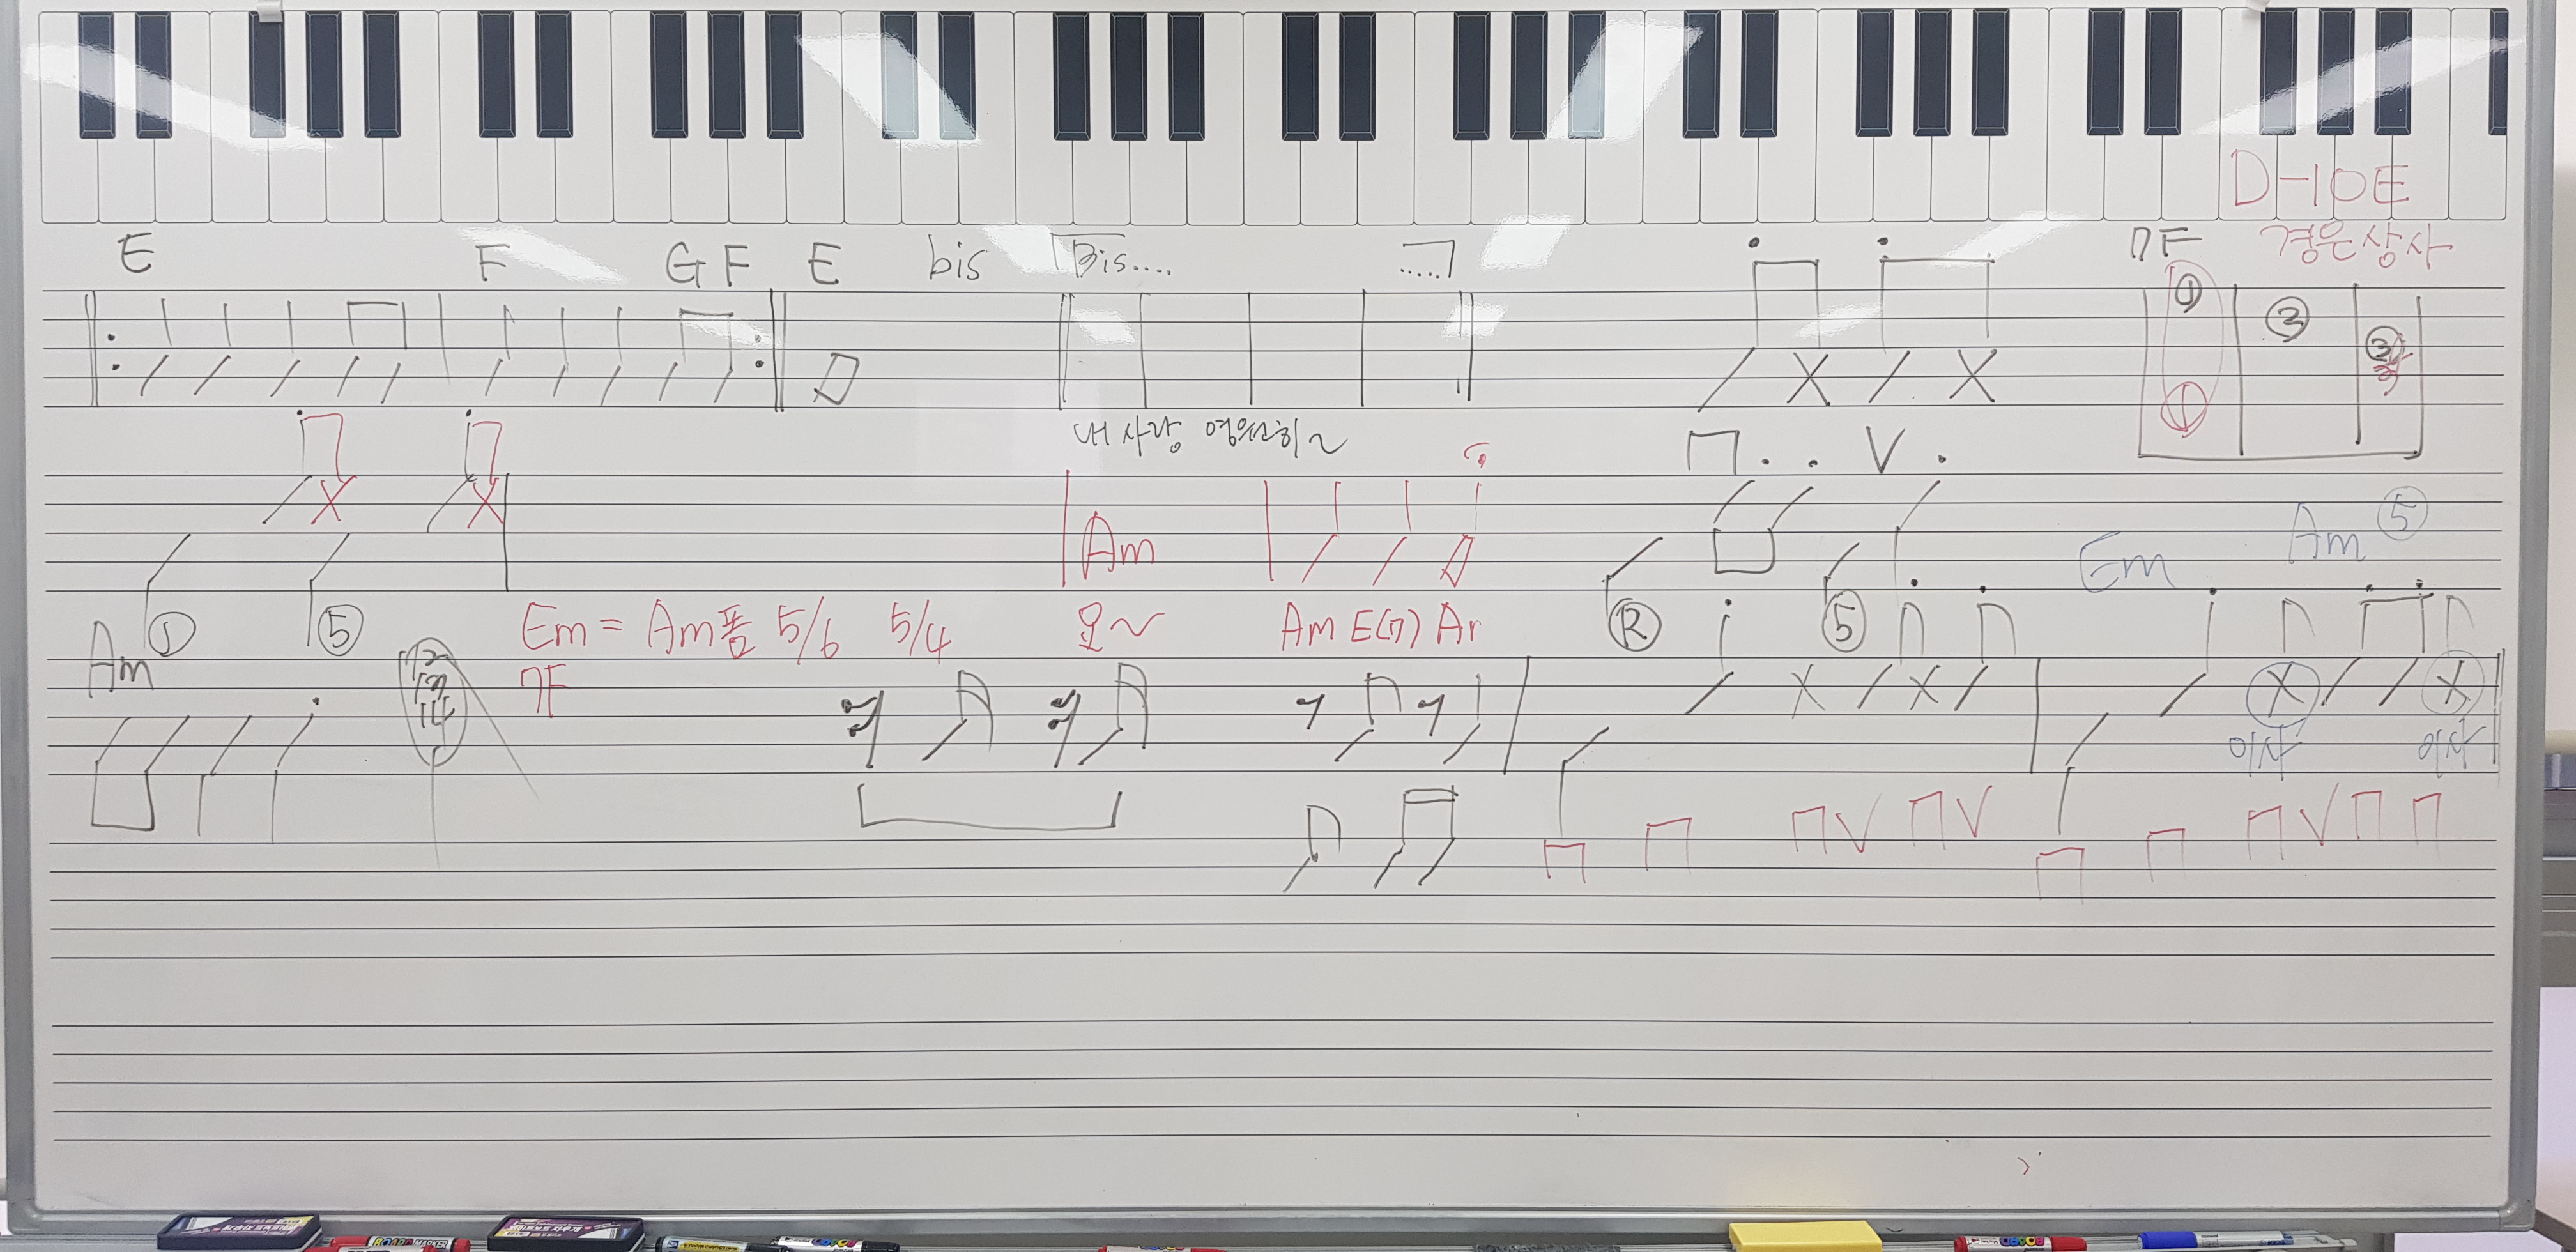 D-10E
E F G F E bis Bis.... .....
7F 경은상사
① ③
내 사랑 영원히~
Π . . V .
Am
Em Am ⑤
① ⑤
Em = Am폼 5/6 5/4 오~ Am E(7) Am
Ⓡ ⑤
Am
12
13
14
7F
이사 이사
Π Π Π V Π V Π Π Π V Π Π
BOARD MARKER